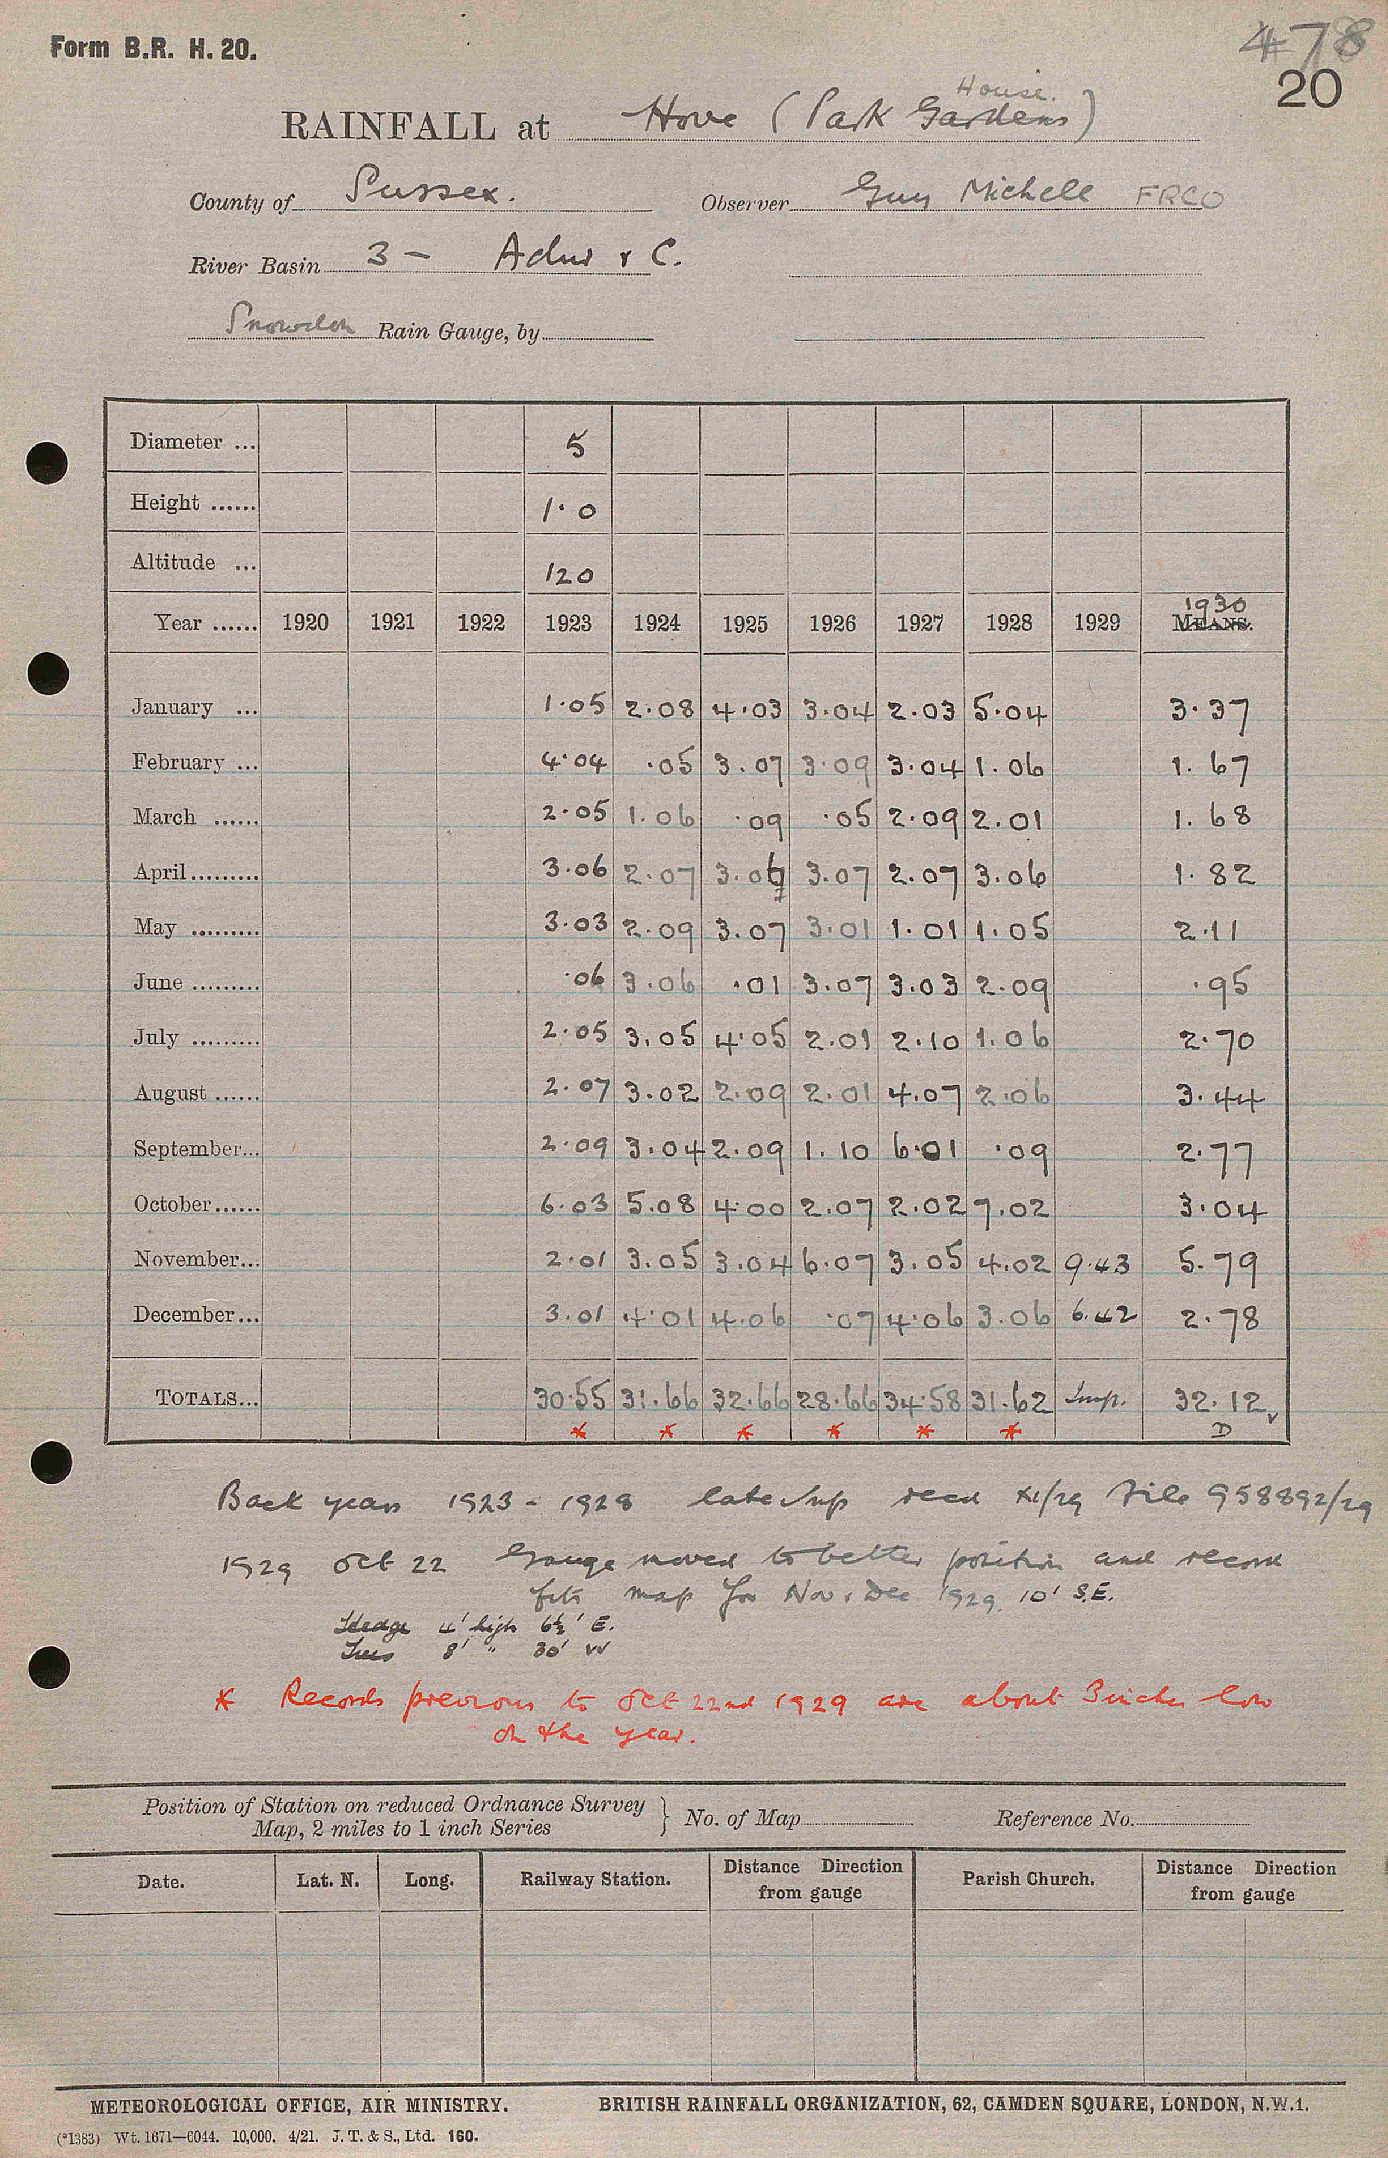 Form B.R. H. 20.
478
20
House.
RAINFALL at Hove (Park Gardens)
County of Sussex. Observer Guy Michell FRCO
River Basin 3 - Adur & C.
Snowdon Rain Gauge, by
Diameter ... 5
Height ...... 1.0
Altitude ... 120
1930
Year ...... 1920 1921 1922 1923 1924 1925 1926 1927 1928 1929 MEANS.
January ... 1.05 2.08 4.03 3.04 2.03 5.04 3.37
February ... 4.04 .05 3.07 3.09 3.04 1.06 1.67
March ...... 2.05 1.06 .09 .05 2.09 2.01 1.68
April ......... 3.06 2.07 3.06 3.07 2.07 3.06 1.82
May ......... 3.03 2.09 3.07 3.01 1.01 1.05 2.11
June ......... .06 3.06 .01 3.07 3.03 2.09 .95
July ......... 2.05 3.05 4.05 2.01 2.10 1.06 2.70
August ...... 2.07 3.02 2.09 2.01 4.07 2.06 3.44
September... 2.09 3.04 2.09 1.10 6.01 .09 2.77
October...... 6.03 5.08 4.00 2.07 2.02 7.02 3.04
November... 2.01 3.05 3.04 6.07 3.05 4.02 9.43 5.79
December... 3.01 4.01 4.06 .07 4.06 3.06 6.42 2.78
TOTALS... 30.55 31.66 32.66 28.66 34.58 31.62 Imp. 32.12
* * * * * * D
Back years 1923 - 1928 recd XI/29 File 958892/29
1929 Oct 22 Gauge moved to better position and record
fits map for Nov & Dec 1929. 10' S.E.
Hedge 4' high 6½' E.
Trees 8' " 30' W
* Records previous to Oct 22nd 1929 are about 3 inches low
on the year.
Position of Station on reduced Ordnance Survey
Map, 2 miles to 1 inch Series } No. of Map Reference No.
Date. Lat. N. Long. Railway Station. Distance Direction from gauge Parish Church. Distance Direction from gauge
METEOROLOGICAL OFFICE, AIR MINISTRY. BRITISH RAINFALL ORGANIZATION, 62, CAMDEN SQUARE, LONDON, N.W.1.
(*1383) Wt. 1671—6044. 10,000. 4/21. J. T. & S., Ltd. 160.